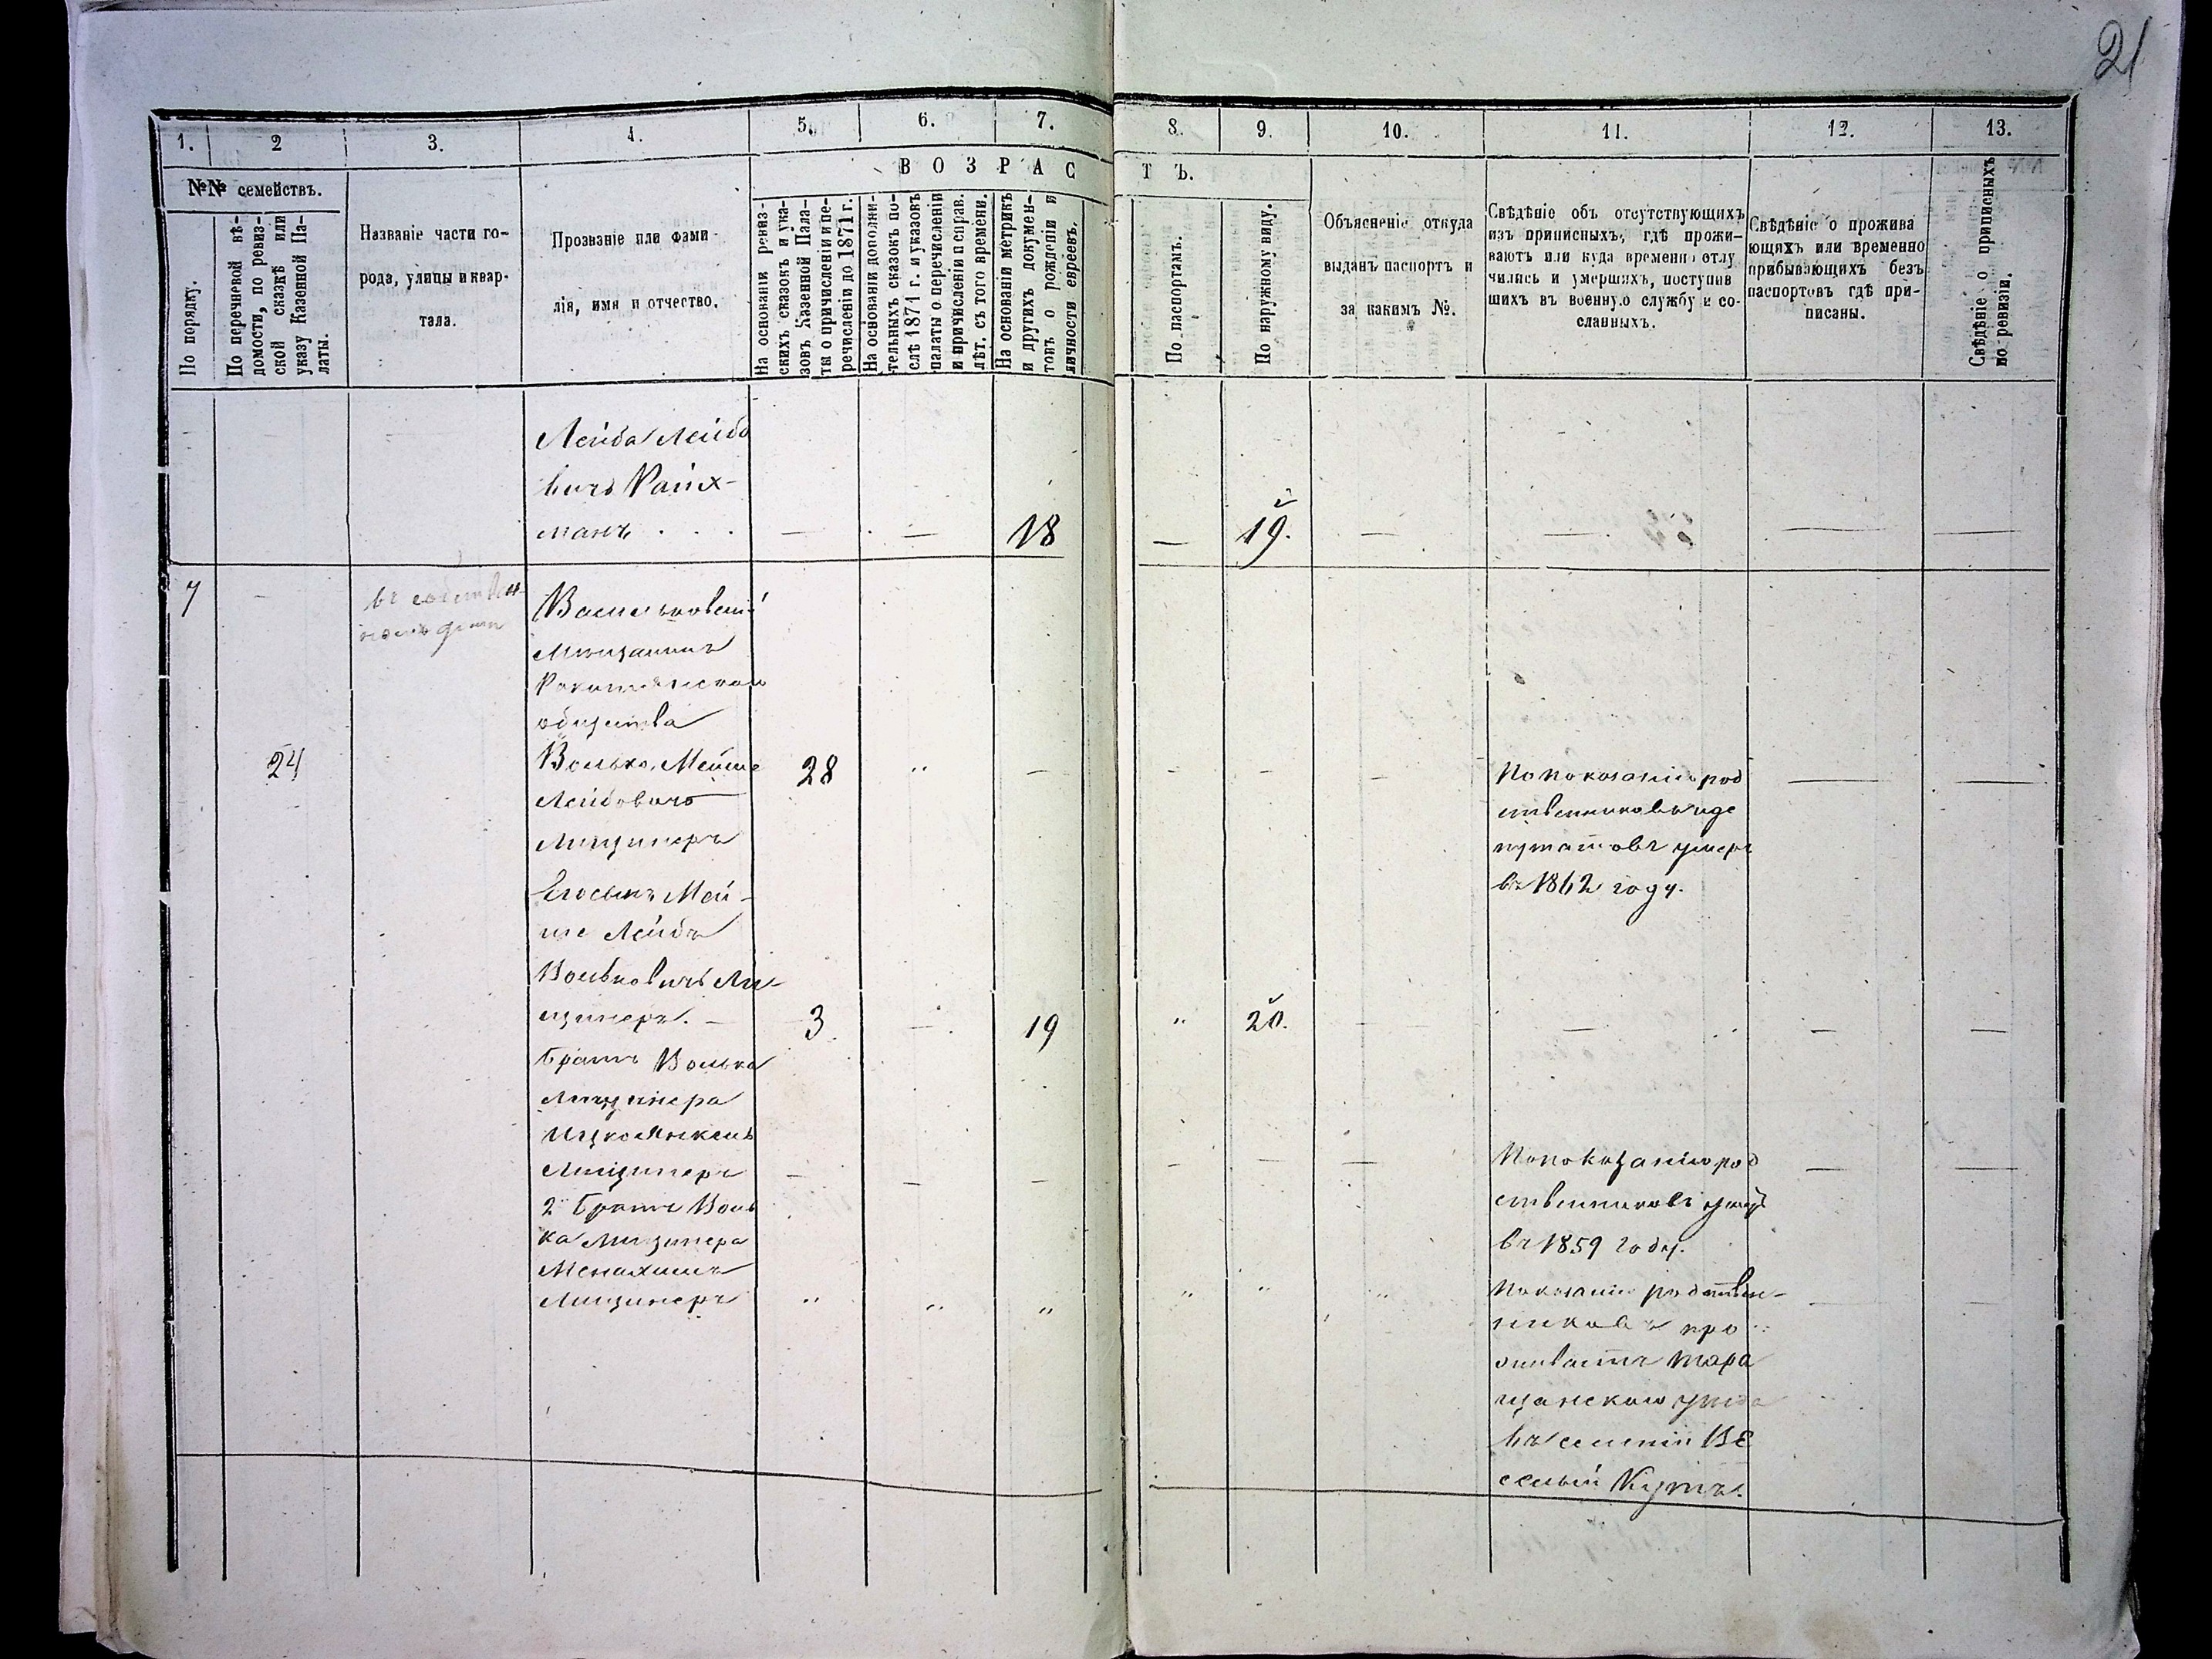 21
1. 2 3. 4. 5. 6. 7. 8. 9. 10. 11. 12. 13.
№№ семействъ.
ВОЗРАСТЪ.
По порядку.
По перечневой вѣ-
домости, по ревиз-
ской сказкѣ или
указу Казенной Па-
латы.
Названіе части го-
рода, улицы и квар-
тала.
Прозваніе или фами-
лія, имя и отчество.
На основаніи ревиз-
скихъ сказокъ и ука-
зовъ Казенной Пала-
ты о причисленіи и пе-
речисленіи до 1871 г.
На основаніи дополни-
тельныхъ сказокъ по-
слѣ 1871 г. и указовъ
палаты о перечисленіи
и причисленіи справ.
лѣт. съ того времени.
На основаніи метрикъ
и другихъ докумен-
товъ о рожденіи и
личности евреевъ.
По паспортамъ.
По наружному виду.
Объясненіе откуда
выданъ паспортъ и
за какимъ №.
Свѣдѣніе объ отсутствующихъ
изъ приписныхъ, гдѣ прожи-
ваютъ или куда временно отлу
чились и умершихъ, поступив
шихъ въ военную службу и со-
сланныхъ.
Свѣдѣніе о прожива
ющихъ или временно
прибывающихъ безъ
паспортовъ гдѣ при-
писаны.
Свѣдѣніе о приписныхъ
по ревизіи.
Лейба Лейбо
вичъ Райх-
манъ . . . — — 18 — 19. — — — —
7 — въ собствен
номъ домѣ
Васильковскій
Мѣщанинъ
Рокитянскаго
общества
24 Волько Мейше 28 " — — — —
Лейбовичъ
Лищинеръ
По показанію род
ственниковъ и де
путатовъ умеръ
въ 1862 году.
Его сынъ Мей-
ше Лейбъ
Вольковичъ Ли-
щинеръ. — 3 — 19 " 20. — — — —
Братъ Волька
Лищинера
Ицко Янкель
Лищинеръ — — — — — —
По показанію род
ственниковъ умеръ
въ 1859 году.
2й Братъ Воль
ка Лищинера
Менахимъ
Лищинеръ " " " " " "
Показанію родствен-
никовъ про
живаетъ Тара
щанского уѣзда
въ селеніи Ве
селый Кутъ.